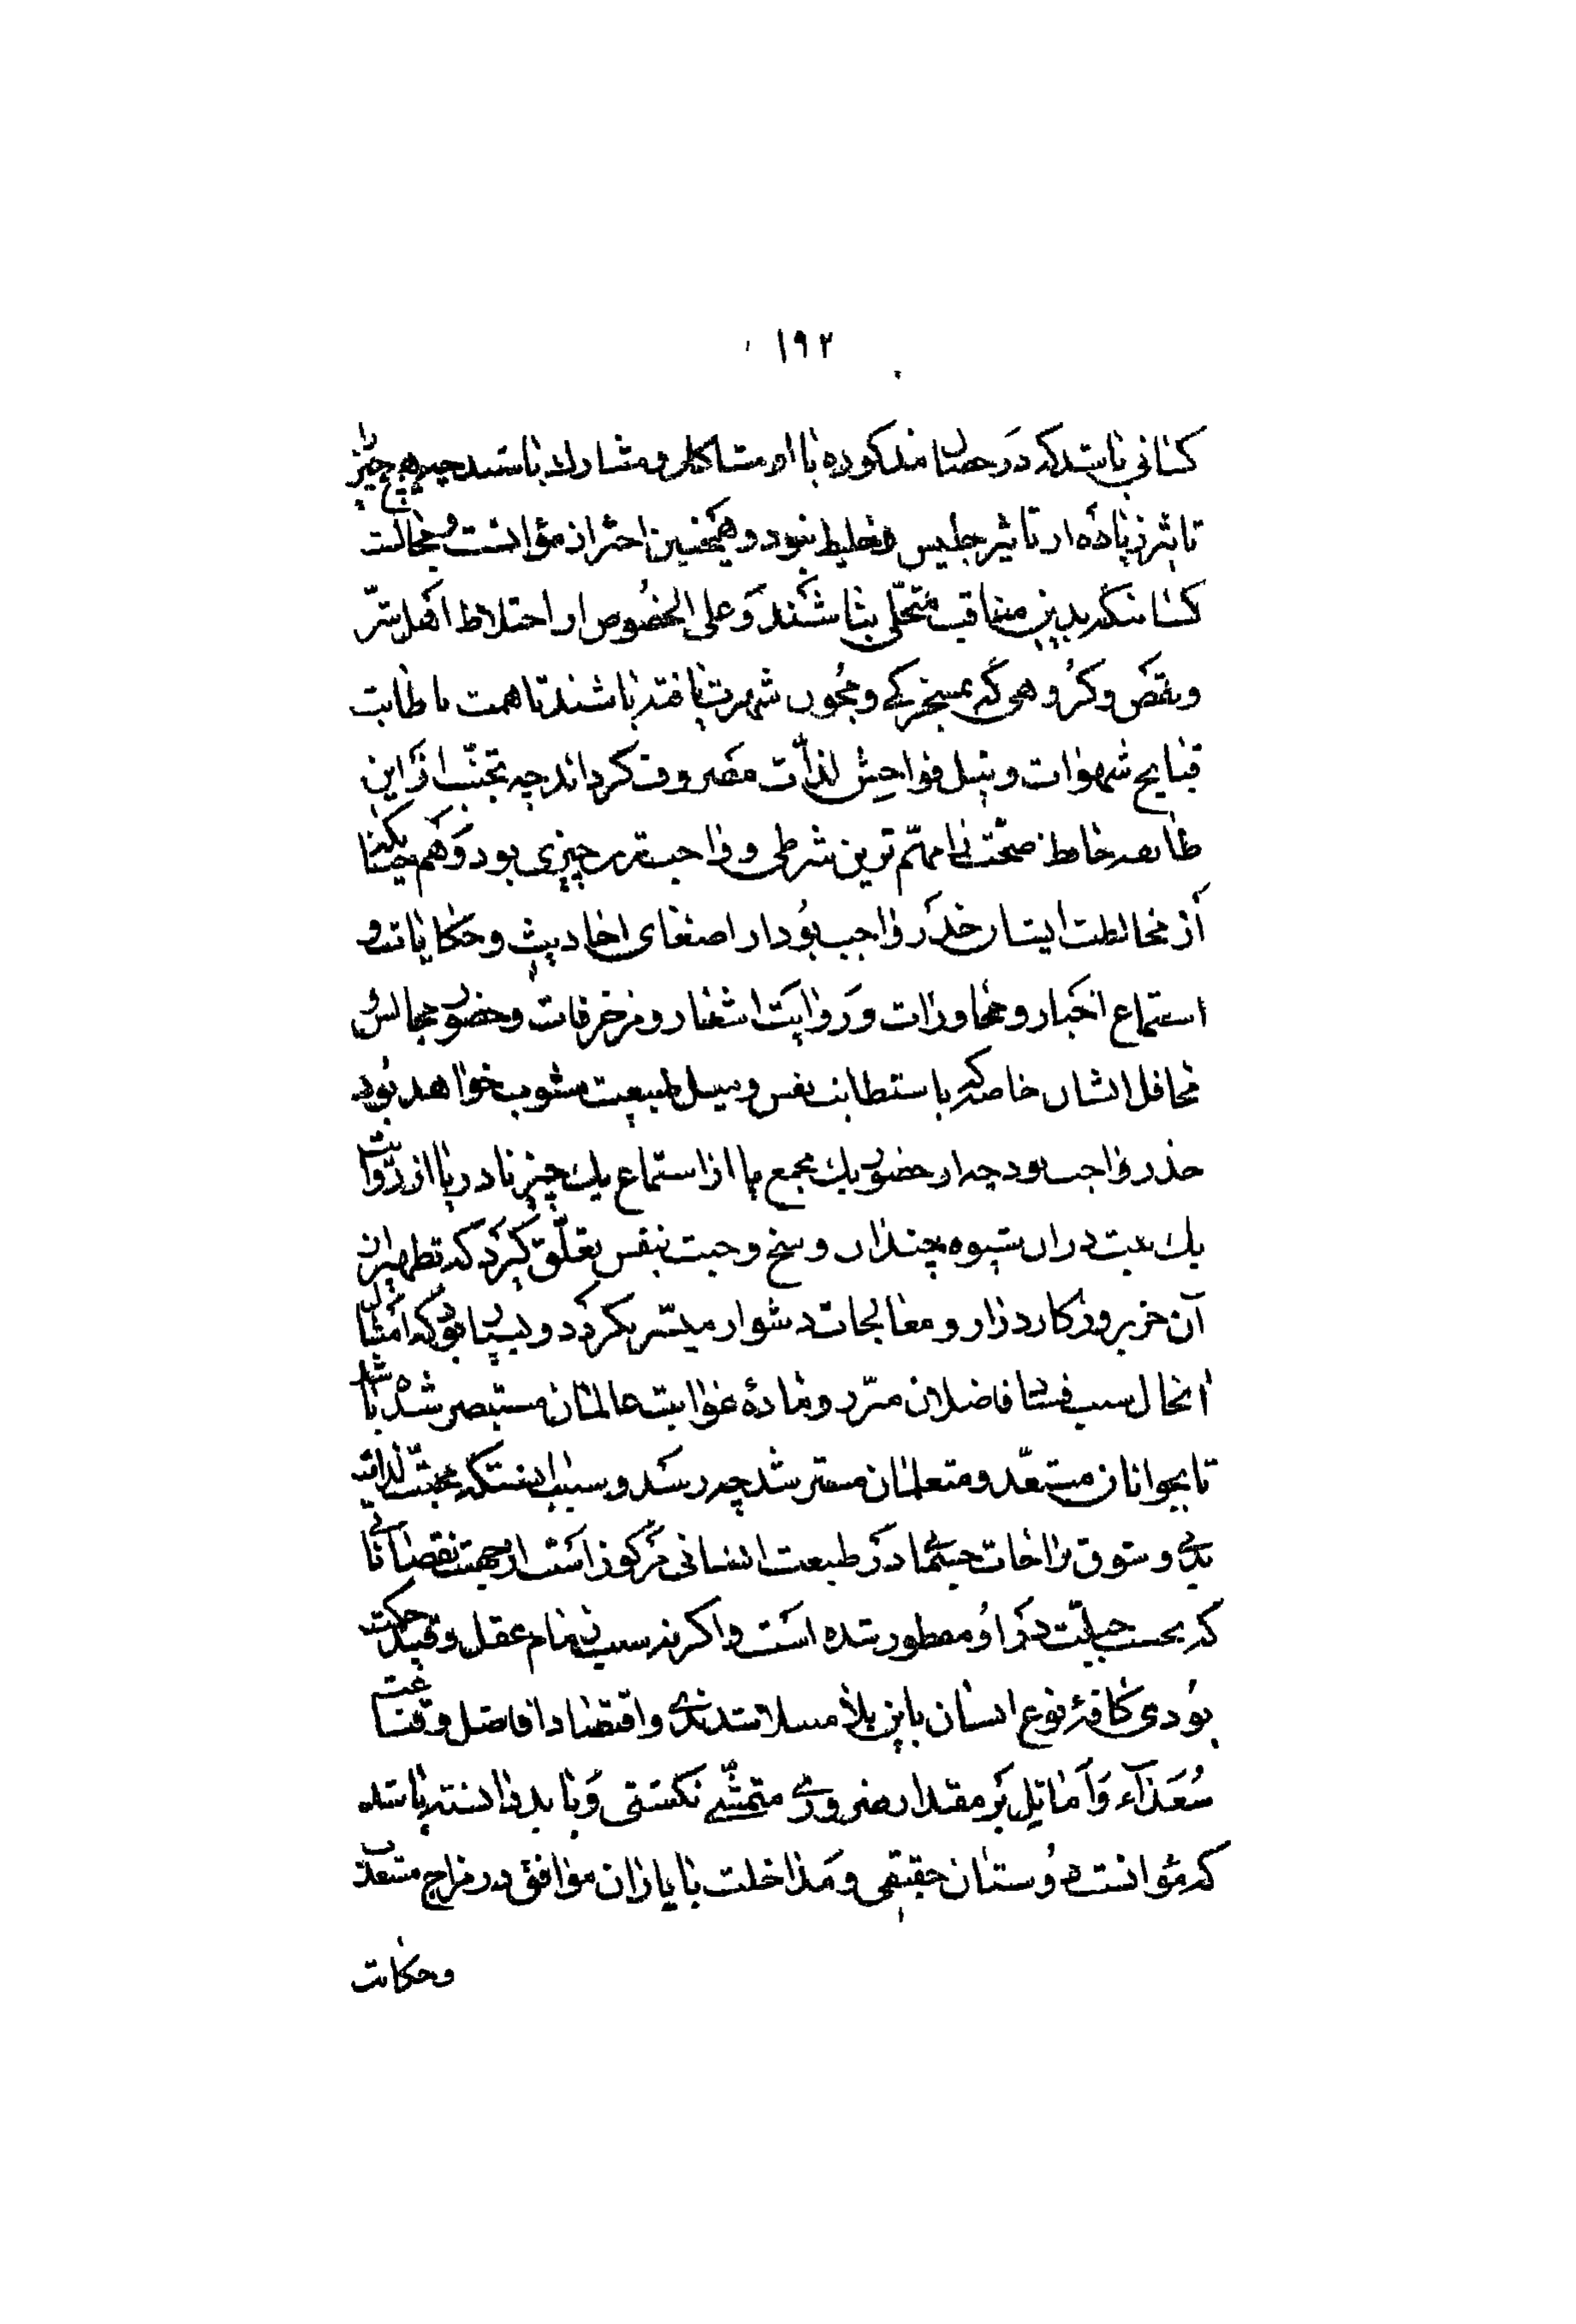 ۱۹۲
کسانی باشد که در خصال مذکوره با او مشاکل و مشارک باشند چه هیچ چیز را
تاثیر زیاده از تاثیر جلیس و خلیط نبود و همچنین احتراز از مؤانست و مجالست
کسانیکه بدین مناقب متحلی نباشند و علی الخصوص از اختلاط اهل شرّ
و نقص و گروهی که بمسخرگی و مجون شهرت یافته باشند تا همت باطابت
قبایح شهوات و نیل فواحش لذّات مصروف گردانند چه تجنّب از این
طایفه حافظ صحّت را مهمّ ترین شرطی و واجب ترین چیزی بود و همچنانکه
از مخالطت ایشان حذر واجب بود از اصغای احادیث و حکایات و
استماع اخبار و محاورات و روایت اشعار و مزخرفات و حضور مجالس و
محافل ایشان خاصه که با استطابت نفس و میل طبیعت مشوب خواهد بود
حذر واجب بود چه از حضور یک مجمع یا از استماع یک چیز نادر یا از روایت
یک بیت در آن شیوه چندان وسخ و خبث بنفس تعلّق گیرد که تطهیر از
آن جز بروزگار دراز و معالجات دشوار میسّر نگردد و بسیار بود که امثال
اینحال سبب فساد فاضلان مبرّز و مادهٔ غوایت عالمان مستبصر شده باشد
تا بجوانان مستعدّ و متعلمان مسترشد چه رسد و سبب اینستکه محبّت لذات
بدنی و شوق براحات جسمانی در طبیعت انسانی مرکوز است از جهت نقصانی
که بحسب جبلّت در او مفطور شده است و اگر نه سبب زمام عقل و قید حکمت
بودی کافهٔ نوع انسان باین بلا مبتلا شدندی و اقتضاد افاضل و قناعت
سعداء و اماثل بر مقدار ضروری متمشّی نگشتی و باید دانسته باشد
که مؤانست دوستان حقیقی و مداخلت با یاران موافق در مزاج مستعذب
و حکایت